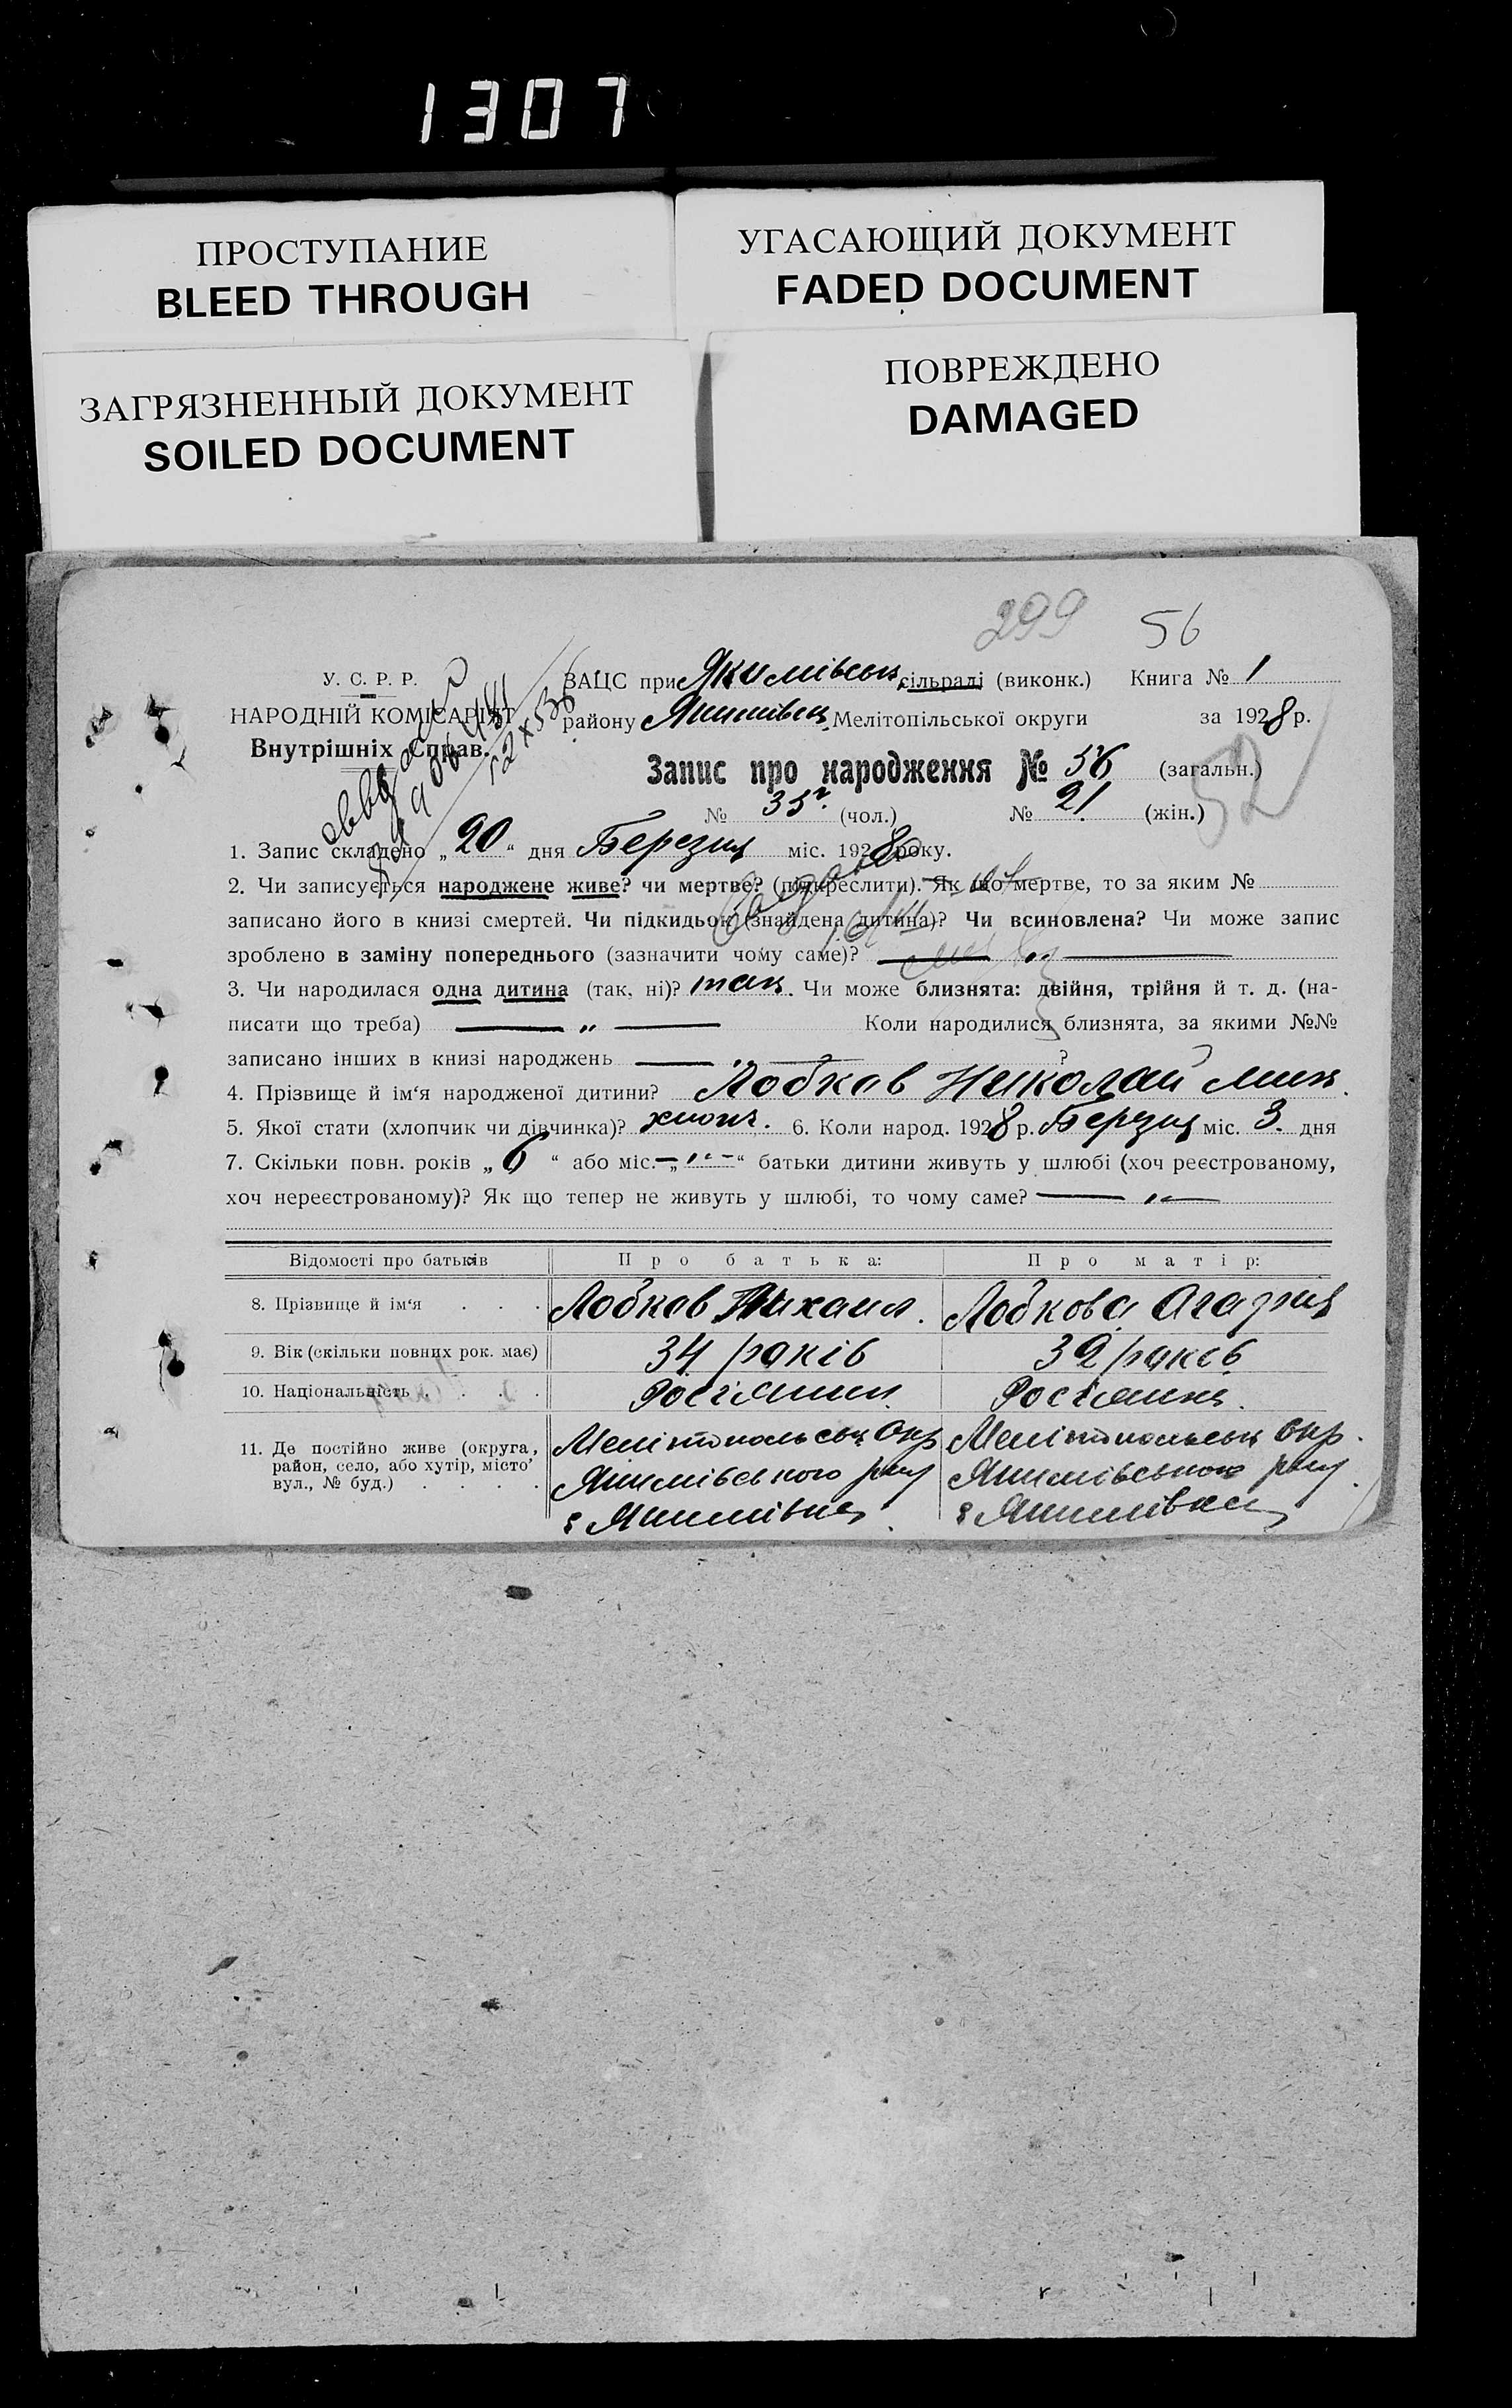 1307
ПРОСТУПАНИЕ
BLEED THROUGH
УГАСАЮЩИЙ ДОКУМЕНТ
FADED DOCUMENT
ЗАГРЯЗНЕННЫЙ ДОКУМЕНТ
SOILED DOCUMENT
ПОВРЕЖДЕНО
DAMAGED
299 56
У. С. Р. Р.
НАРОДНІЙ КОМІСАРІЯТ
Внутрішніх Справ.
ЗАЦС при Якимівськ. сільраді (виконк.) Книга № 1
району Якимівськ. Мелітопільської округи за 1928 р.
Запис про народження № 56 (загальн.)
52
№ 35 (чол.) № 21 (жін.)
1. Запис складено „20“ дня Березня міс. 1928 року.
2. Чи записується народжене живе? чи мертве? (підкреслити). Як що мертве, то за яким №
записано його в книзі смертей. Чи підкидьок (знайдена дитина)? Чи всиновлена? Чи може запис
зроблено в заміну попереднього (зазначити чому саме)? — „ —
3. Чи народилася одна дитина (так, ні)? так. Чи може близнята: двійня, трійня й т. д. (на-
писати що треба) — „ — Коли народилися близнята, за якими №№
записано інших в книзі народжень — „ — ?
4. Прізвище й ім‘я народженої дитини? Лобков Николай
5. Якої стати (хлопчик чи дівчинка)? хлопч. 6. Коли народ. 1928 р. Березня міс. 3. дня
7. Скільки повн. років „6“ або міс. „—“ батьки дитини живуть у шлюбі (хоч реєстрованому,
хоч нереєстрованому)? Як що тепер не живуть у шлюбі, то чому саме? — „ —
Відомості про батьків Про батька: Про матір:
8. Прізвище й ім‘я . . . Лобков Михаил. Лобкова Агафия
9. Вік (скільки повних рок. має) 34 років 32 років
10. Національність . . . . Росіянин Росіянка.
11. Де постійно живе (округа,
район, село, або хутір, місто’
вул., № буд.) . . . .
Мелітопольськ Окр Мелітопольськ Окр.
Якимівського рай Якимівського рай
с Якимівка с Якимівка